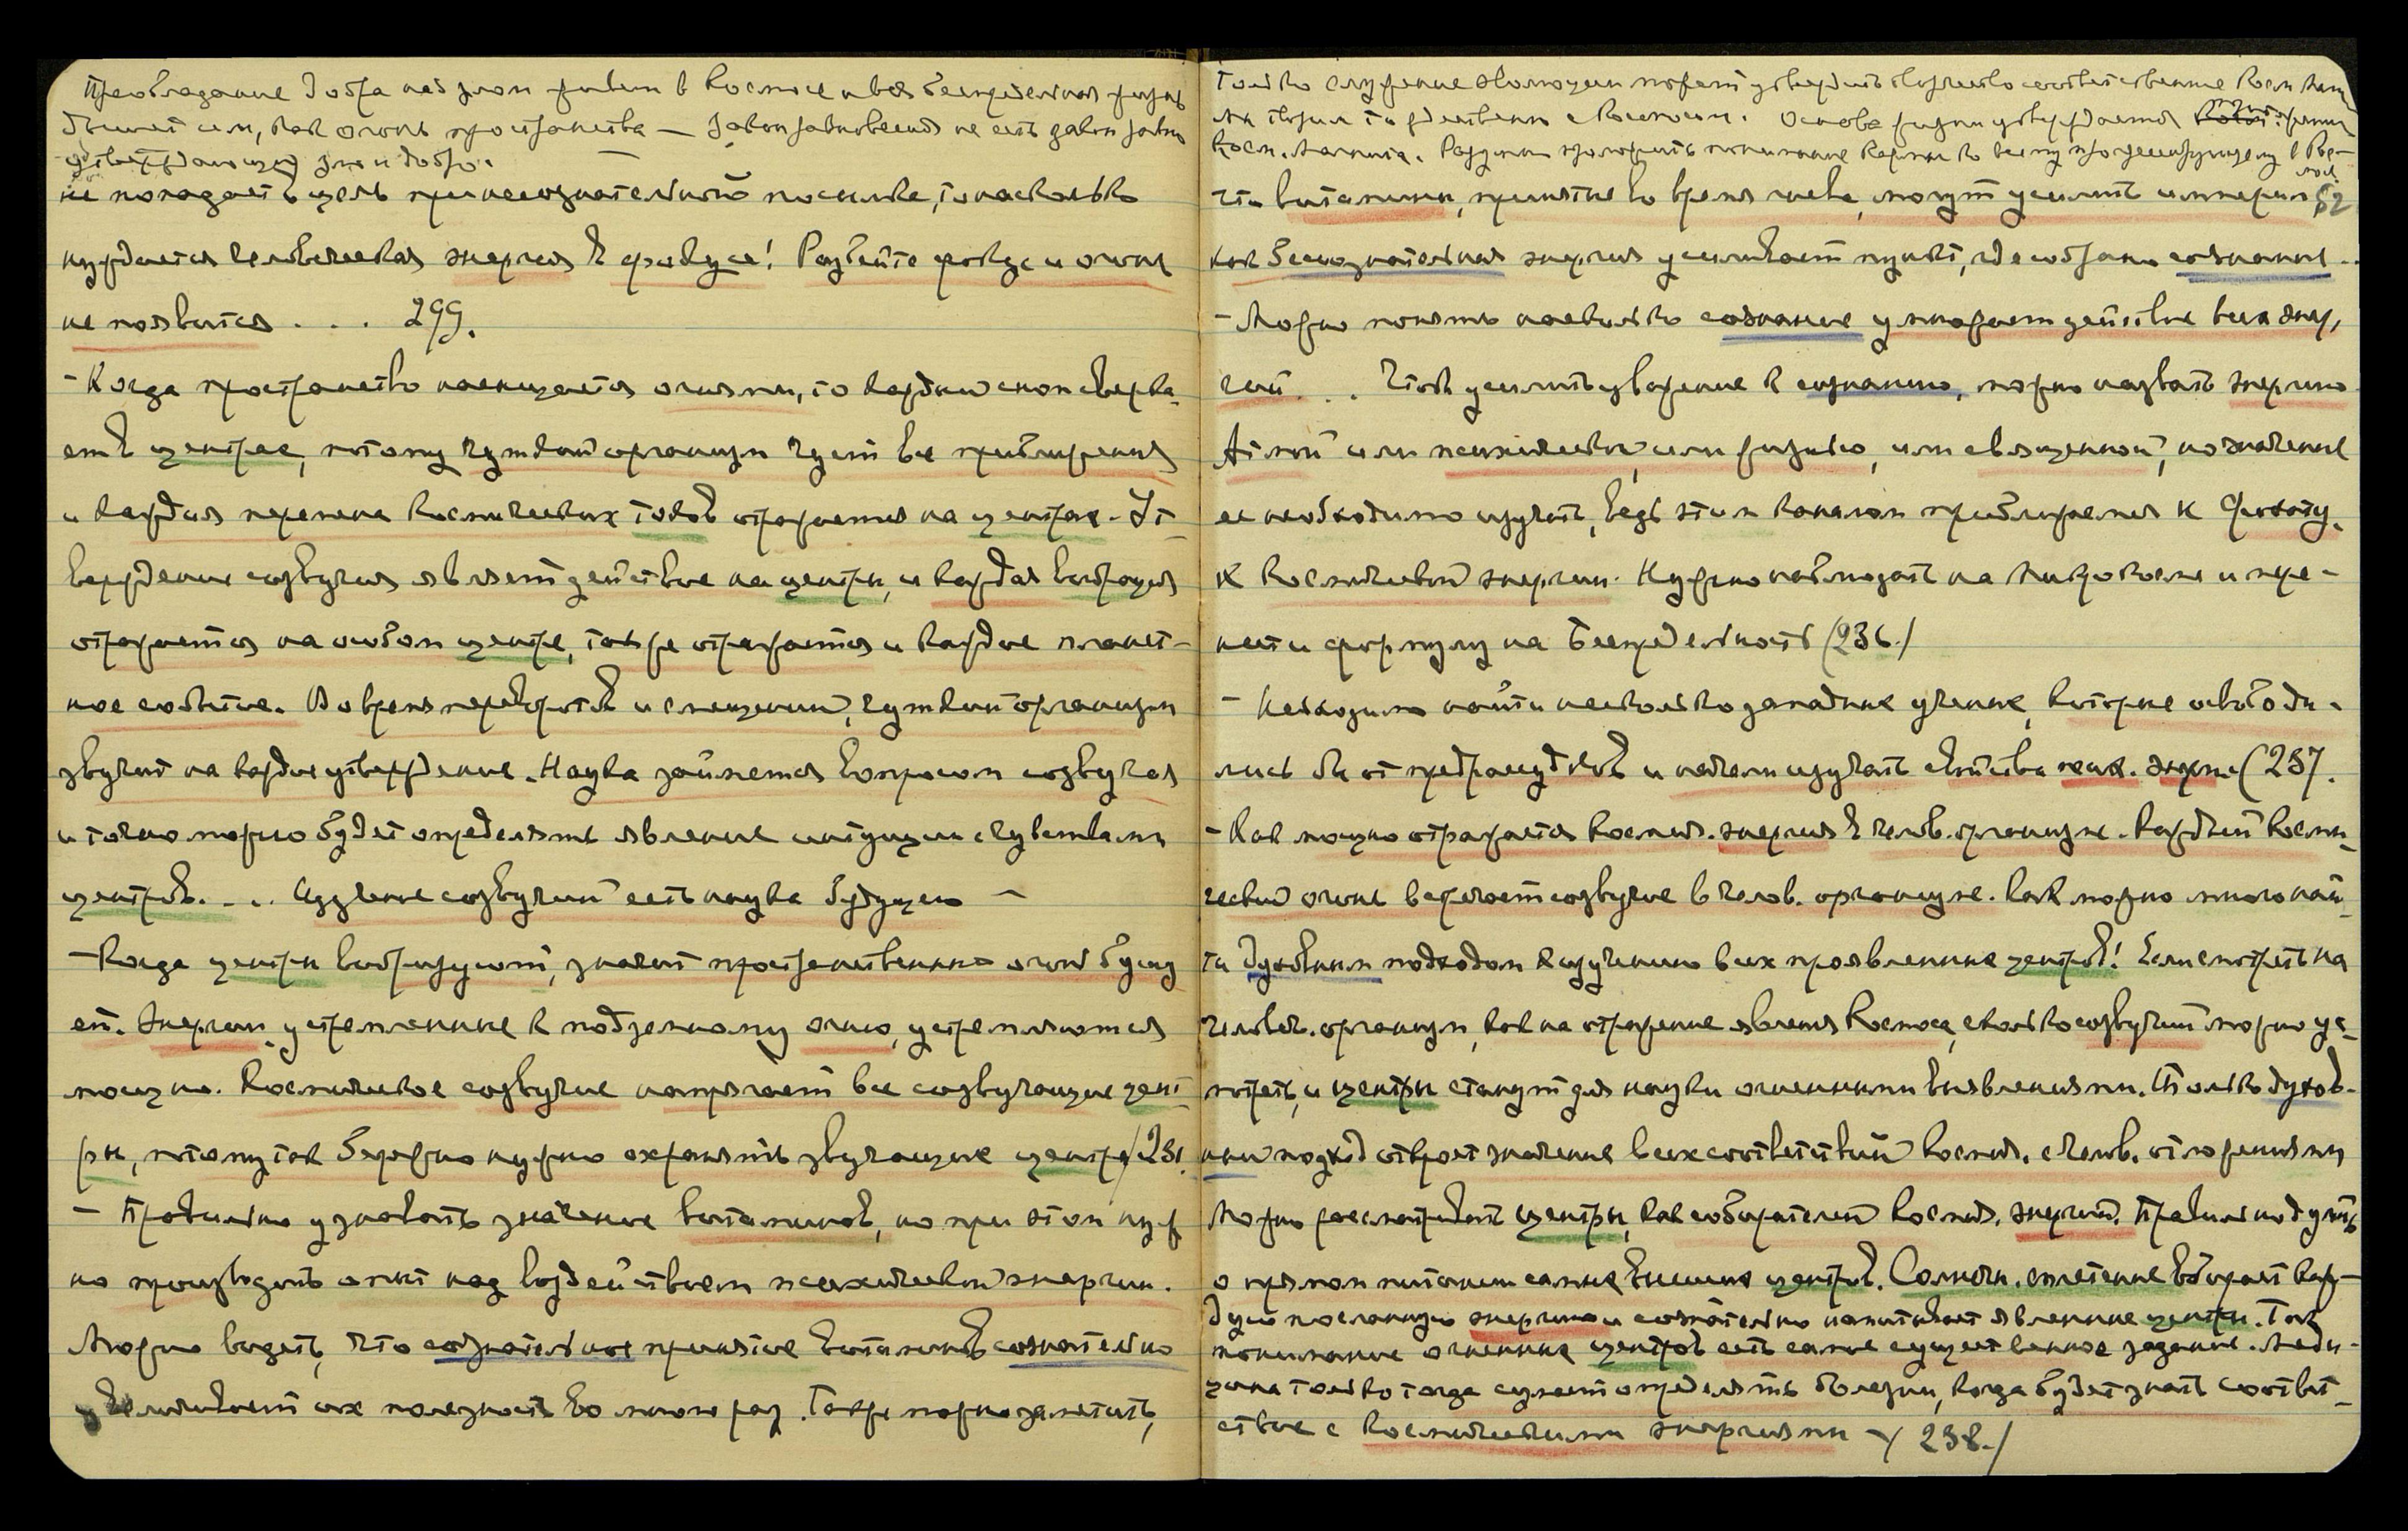 Преобладание добра над злом явлен в Космосе и вся беспредельная жизнь
дышит им, как огонь пространства — Закон равновесия не есть закон равно
утверждающий зло и добро.
не попадает в цель при несознательной посылке, то насколько
нуждается человеческая энергия в фокусе! Разбейте фокус и огонь
не появится . . . 299.
- Когда пространство насыщается огнями, то каждый сноп сверка-
ет в центре, потому чуткий организм чует все приближения
и каждая перемена космических токов отражается на центрах. Ут-
верждение созвучия являет действие на центры, и каждая вибрация
отражается на особом центре, также отражается и каждое планет-
ное событие. Во время переворотов и смещений, чуткий организм
звучит на каждое утверждение. Наука займется вопросом созвучия
и точно можно будет определять явление интуиции с чувствами
центров. . . . Изучение созвучий есть наука будущего —
- Когда центры вибрируют, значит пространственный огонь бушу
ет. Энергии, устремленные к подземному огню, устремляются
мощно. Космическое созвучие напрягает все созвучащие цент-
ры, потому так бережно нужно охранять звучащие центры /231.
- Правильно узнавать значение витаминов, но при этом нуж
но производить опыт над воздействием психической энергии.
Можно видеть, что сознательное принятие витаминов сознательно
увеличивает их полезность во много раз. Также можно заметить,
Только служение эволюции может утвердить творчество соответственное Косм. Маг.
Мы творим тождественно с Космосом. Основа жизни утверждается
Косм. Магнита.
что витамины, принятые во время гнева, могут усилить империл 52
как бессознательная энергия усиливает пункт, где собрано сознание . .
- Можно понять насколько сознание умножает действие всех энер-
гий . . . Чтоб усилить уважение к сознанию, можно назвать энергию
Атмой или психической, или жизнью, или священной, но значение
ее необходимо изучать, ведь этим каналом приближаемся к Фохату,
к Космической энергии. Нужно наблюдать на Микрокосме и пере-
нести формулу на Беспредельность (236./
- Необходимо найти несколько западных ученых, которые освободи-
лись бы от предрассудков и начали изучать свойства псих. энерг. (237.
- Как мощно отражается космич. энергия в челов. организме. Каждый Косми-
ческий огонь зажигает созвучие в челов. организме. Как можно много най-
ти духовным подходом к изучению всех проявлений центров! Если смотреть на
человеч. организм, как на отражение явления Космоса, сколько созвучий можно ус-
мотреть, и центры станут для науки огненными выявлениями. Только духов-
ный подход откроет значение всех соответствий космич. с челов. отложениями
Можно рассматривать центры, как собирателей космич. энергий. Правильно думать
о прямом питании самых высших центров. Солнечн. сплетение вбирает каж-
дую посланную энергию и сознательно напитывает явленные центры. Так
понимание огненных центров есть самое существенное задание. Меди-
цина только тогда сумеет определять болезни, когда будет знать соответ-
ствие с космическими энергиями —/ 238./